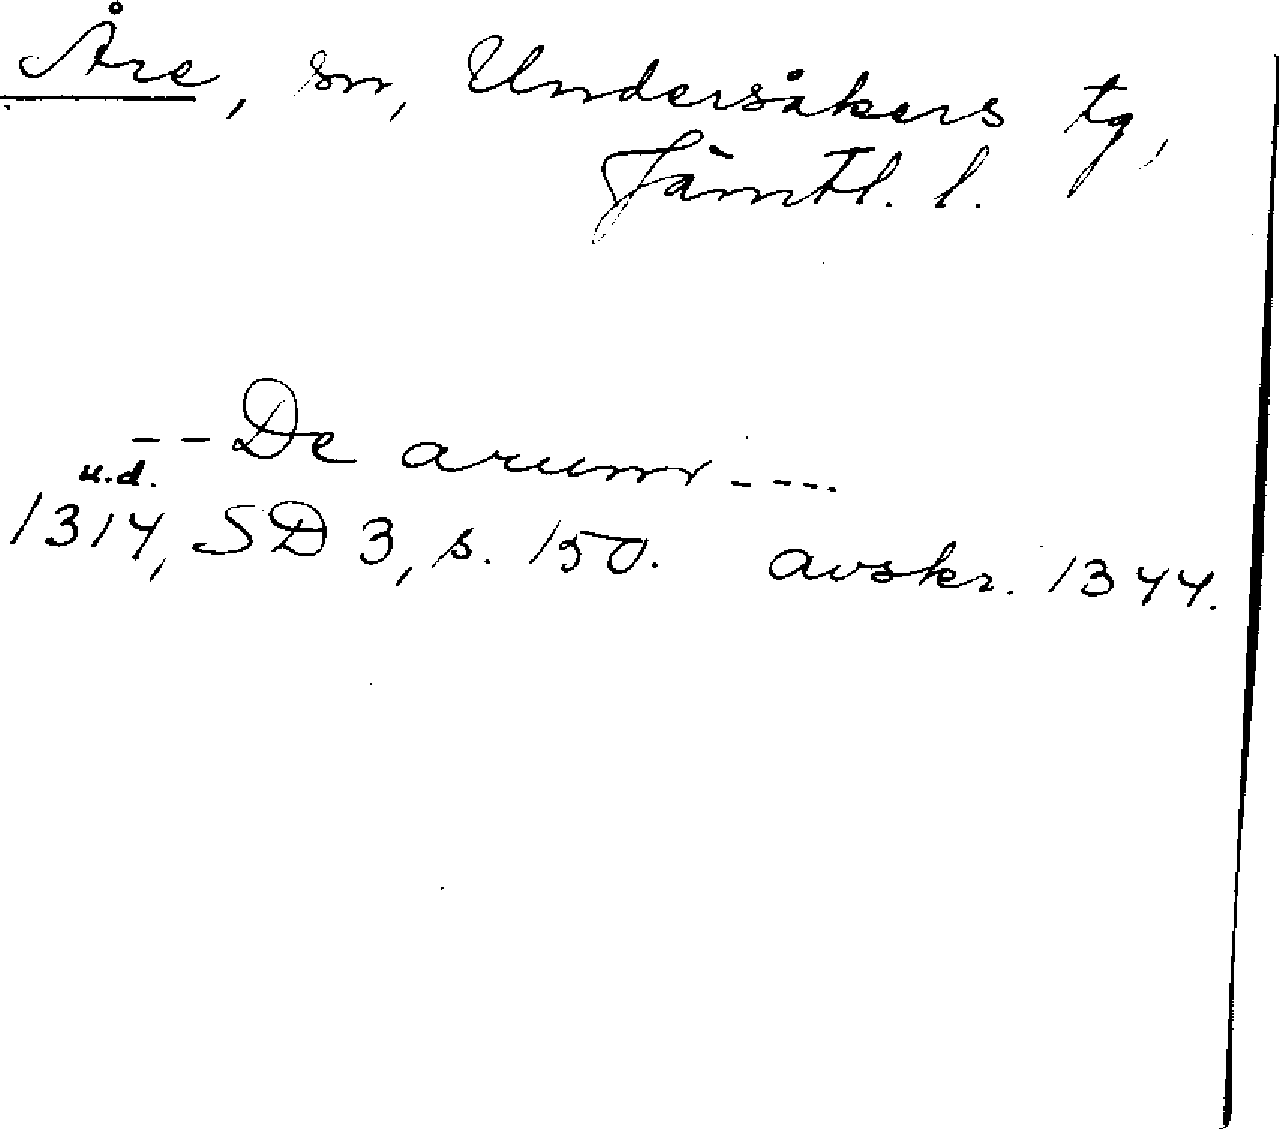 Åre, sn, Undersåkers tg,
Jämtl. l.
-- De arum ----
u.d.
1314, SD 3, s. 150. avskr. 1344.